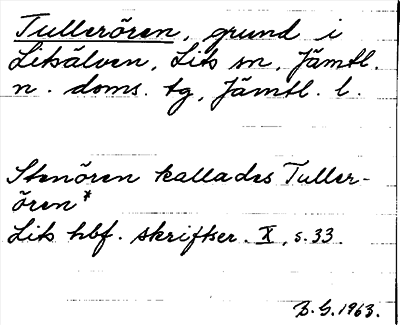 Tullerören, grund i
Litsälven, Lits sn, Jämtl.
n. doms. tg, Jämtl. l.
Stenören kallades Tuller-
ören*
Lits hbf. skrifter. X, s. 33
B. G. 1963.